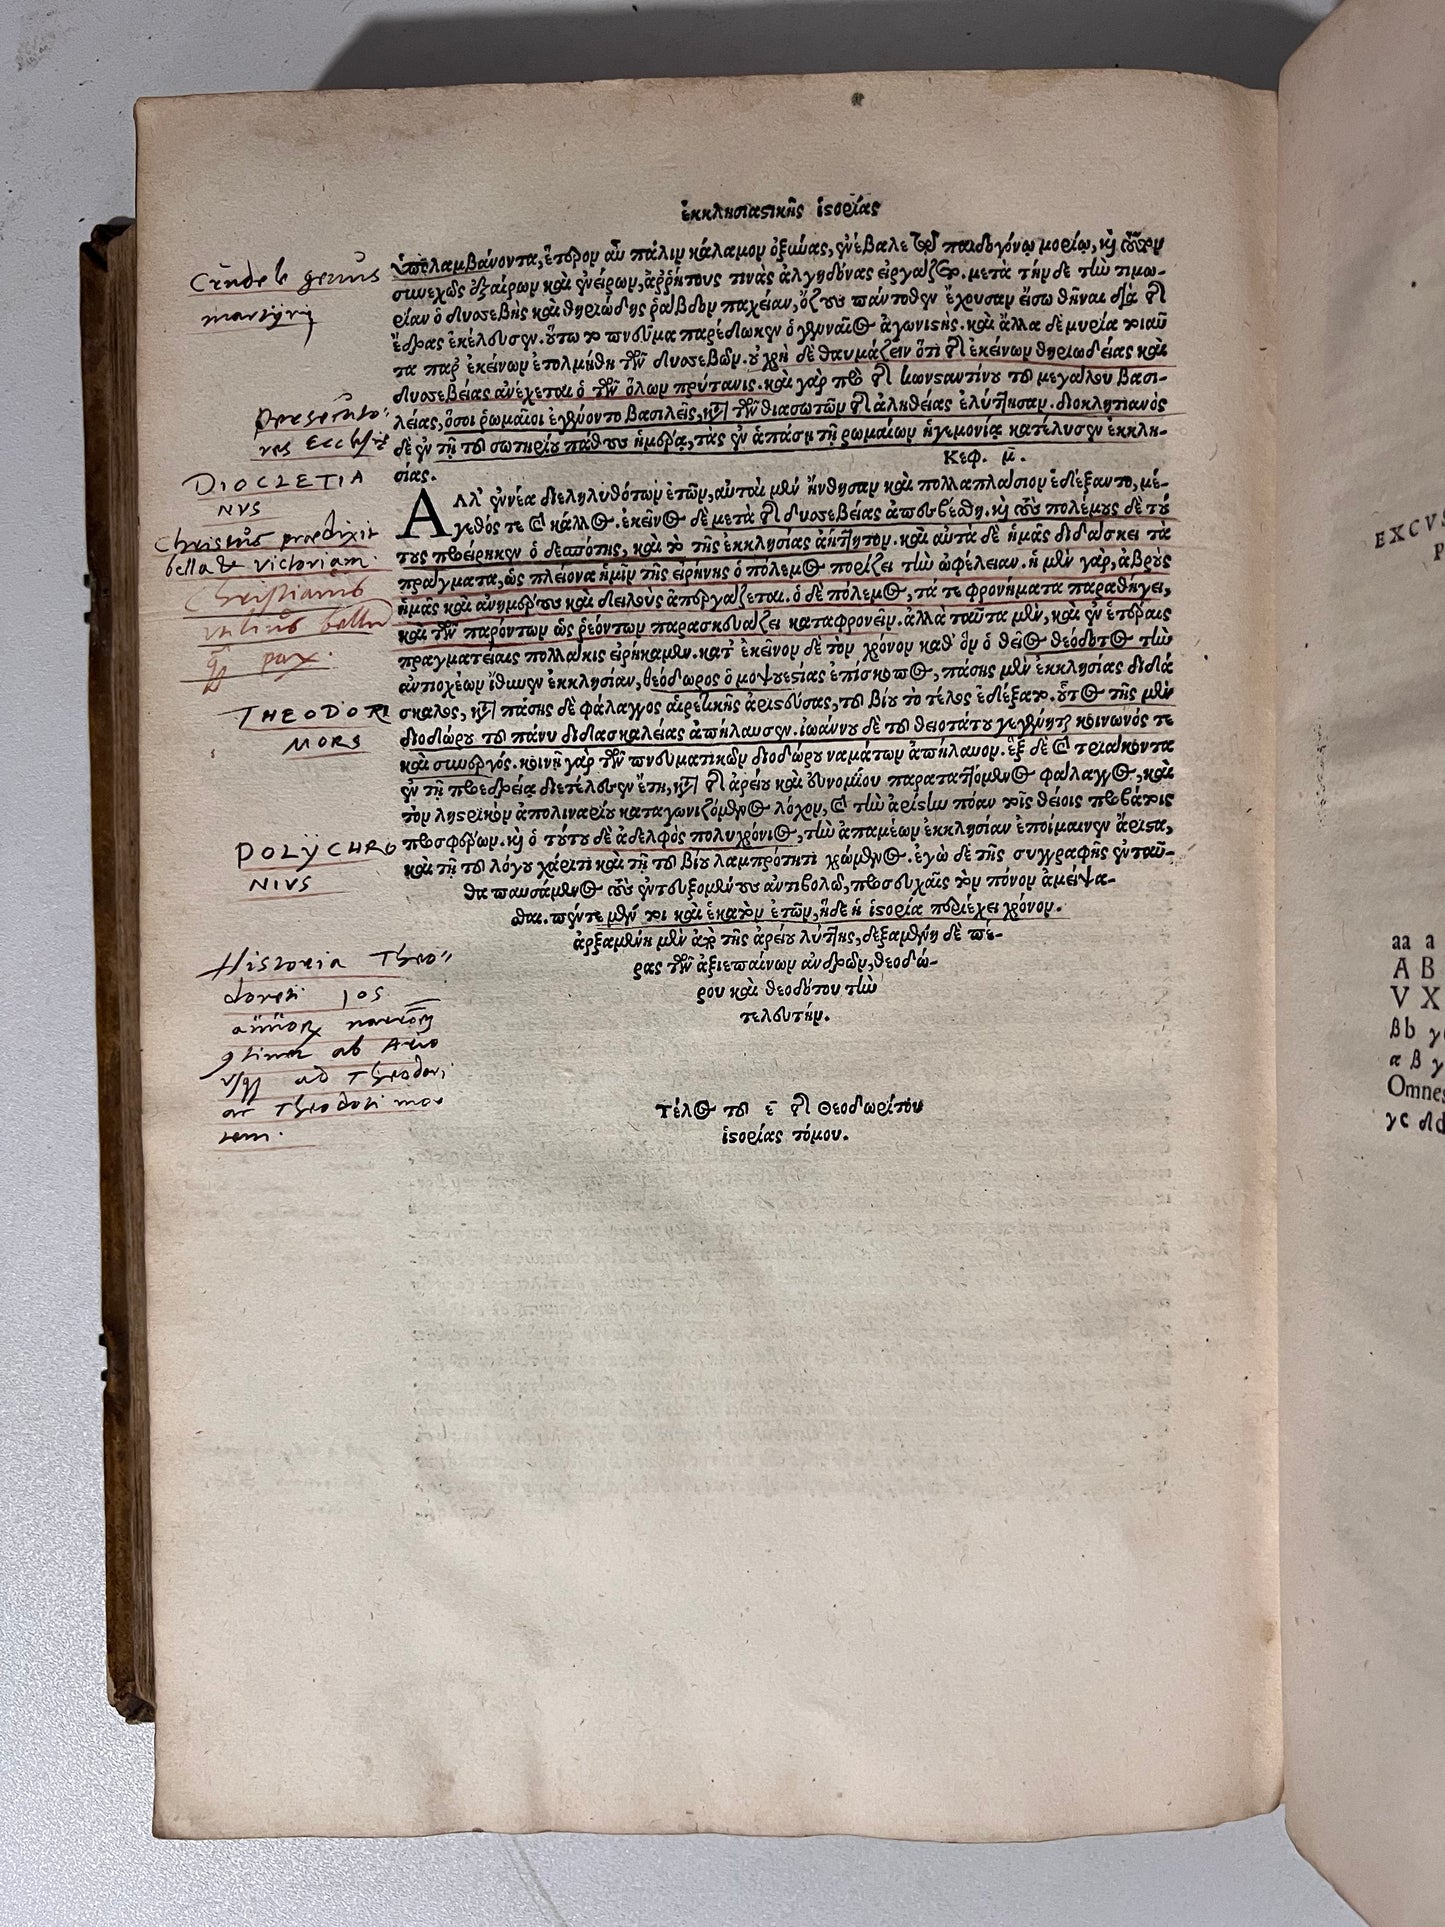 ἐκκλησιαστικῆς ἱστορίας
ὑπολαμβάνοντα, ἕτερον αὖ πάλιν κάλαμον ὀξύνας, ἐνέβαλε τῷ παιδογόνῳ μορίῳ, καὶ τοῦτον
συνεχῶς ἐξαίρων καὶ ἐνείρων, ἀρρήτους τινὰς ἀλγηδόνας εἰργάζετο. μετὰ τήνδε τὴν τιμω-
ρίαν ὁ δυσσεβὴς καὶ θηριώδης ῥάβδον παχεῖαν, ὄζους πάντοθεν ἔχουσαν εἴσω θῆναι διὰ τῆς
ἕδρας ἐκέλευσεν. οὕτω τὸ πνεῦμα παρέδωκεν ὁ γενναῖος ἀγωνιστής. καὶ ἄλλα δὲ μυρία τοιαῦ
τα παρ' ἐκείνων ἐτολμήθη τῶν δυσσεβῶν. οὐ χρὴ δὲ θαυμάζειν ὅτι τῆς ἐκείνων θηριωδείας καὶ
δυσσεβείας ἀνέχεται ὁ τῶν ὅλων πρύτανις. καὶ γὰρ πρὸ τῆς κωνσταντίνου τοῦ μεγάλου βασι-
λείας, ὅσοι ῥωμαῖοι ἐγένοντο βασιλεῖς, κατὰ τῶν θιασωτῶν τῆς ἀληθείας ἐλύττησαν. διοκλητιανὸς
δὲ ἐν τῇ τοῦ σωτηρίου πάθους ἡμέρᾳ, τὰς ἐν ἁπάσῃ τῇ ῥωμαίων ἡγεμονίᾳ κατέλυσεν ἐκκλη-
σίας.
Κεφ. μ̄.
ΑΛΛ' ἐννέα διεληλυθότων ἐτῶν, αὐταὶ μὲν ἤνθησαν καὶ πολλαπλάσιον ἐδέξαντο, μέ-
γεθός τε καὶ κάλλος. ἐκεῖνος δὲ μετὰ τῆς δυσσεβείας ἀπεσβέσθη. καὶ τοὺς πολέμους δὲ τού
τους προείρηκεν ὁ δεσπότης, καὶ τὸ τῆς ἐκκλησίας ἀήττητον. καὶ αὐτὰ δὲ ἡμᾶς διδάσκει τὰ
πράγματα, ὡς πλείονα ἡμῖν τῆς εἰρήνης ὁ πόλεμος πορίζει τὴν ὠφέλειαν. ἡ μὲν γὰρ, ἁβροὺς
ἡμᾶς καὶ ἀνημέρους καὶ δειλοὺς ἀπεργάζεται. ὁ δὲ πόλεμος, τά τε φρονήματα παραθήγει,
καὶ τῶν παρόντων ὡς ῥεόντων παρασκευάζει καταφρονεῖν. ἀλλὰ ταῦτα μὲν, καὶ ἐν ἑτέραις
πραγματείαις πολλάκις εἰρήκαμεν. κατ' ἐκεῖνον δὲ τὸν χρόνον καθ' ὃν ὁ θεῖος θεόδοτος τὴν
ἀντιοχέων ἴθυνεν ἐκκλησίαν, θεόδωρος ὁ μοψουεστίας ἐπίσκοπος, πάσης μὲν ἐκκλησίας διδά
σκαλος, κατὰ πάσης δὲ φάλαγγος αἱρετικῆς ἀριστεύσας, τοῦ βίου τὸ τέλος ἐδέξατο. οὗτος τῆς μὲν
διοδώρου τοῦ πάνυ διδασκαλείας ἀπήλαυσεν. ἰωάννου δὲ τοῦ θειοτάτου γεγένηται κοινωνός τε
καὶ συνεργός. κοινῇ γὰρ τῶν πνευματικῶν διοδώρου ναμάτων ἀπήλαυον. ἓξ δὲ καὶ τριάκοντα
ἐν τῇ προεδρείᾳ διετέλεσεν ἔτη, κατὰ τῆς ἀρείου καὶ εὐνομίου παραταττόμενος φάλαγγος, καὶ
τὸν λῃστρικὸν ἀπολιναρίου καταγωνιζόμενος λόχον, καὶ τὴν ἀρίστην πόαν τοῖς θείοις προβάτοις
προσφέρων. καὶ ὁ τούτου δὲ ἀδελφὸς πολυχρόνιος, τὴν ἀπαμέων ἐκκλησίαν ἐποίμαινεν ἄριστα,
καὶ τῇ τοῦ λόγου χάριτι καὶ τῇ τοῦ βίου λαμπρότητι χρώμενος. ἐγὼ δὲ τῆς συγγραφῆς ἐνταῦ-
θα παυσάμενος τοὺς ἐντευξομένους ἀντιβολῶ, προσευχαῖς τὸν πόνον ἀμείψα-
σθαι. πέντε μέν τοι καὶ ἑκατὸν ἐτῶν, ἥδε ἡ ἱστορία περιέχει χρόνον.
ἀρξαμένη μὲν ἀπὸ τῆς ἀρείου λύττης, δεξαμένη δὲ πέ-
ρας τῶν ἀξιεπαίνων ἀνδρῶν, θεοδώ-
ρου καὶ θεοδότου τὴν
τελευτήν.
Τέλος τοῦ ε̄ τῆς Θεοδωρίτου
ἱστορίας τόμου.
Crudele genus
martyrij
Persecuto-
res Ecclesie
DIOCLETIA
NVS
Christus praedixit
bella & victoriam.
Christianis
utilius bellum
pax.
THEODORI
MORS
POLYCHRO
NIVS
Historia Theo-
doreti 105
annorum
continet ab Ario
usque ad Theodori
ac Theodoti mor
tem.
EXCVS
P
aa a
A B
V X
βb γ
α β γ
Omnes
γc δd